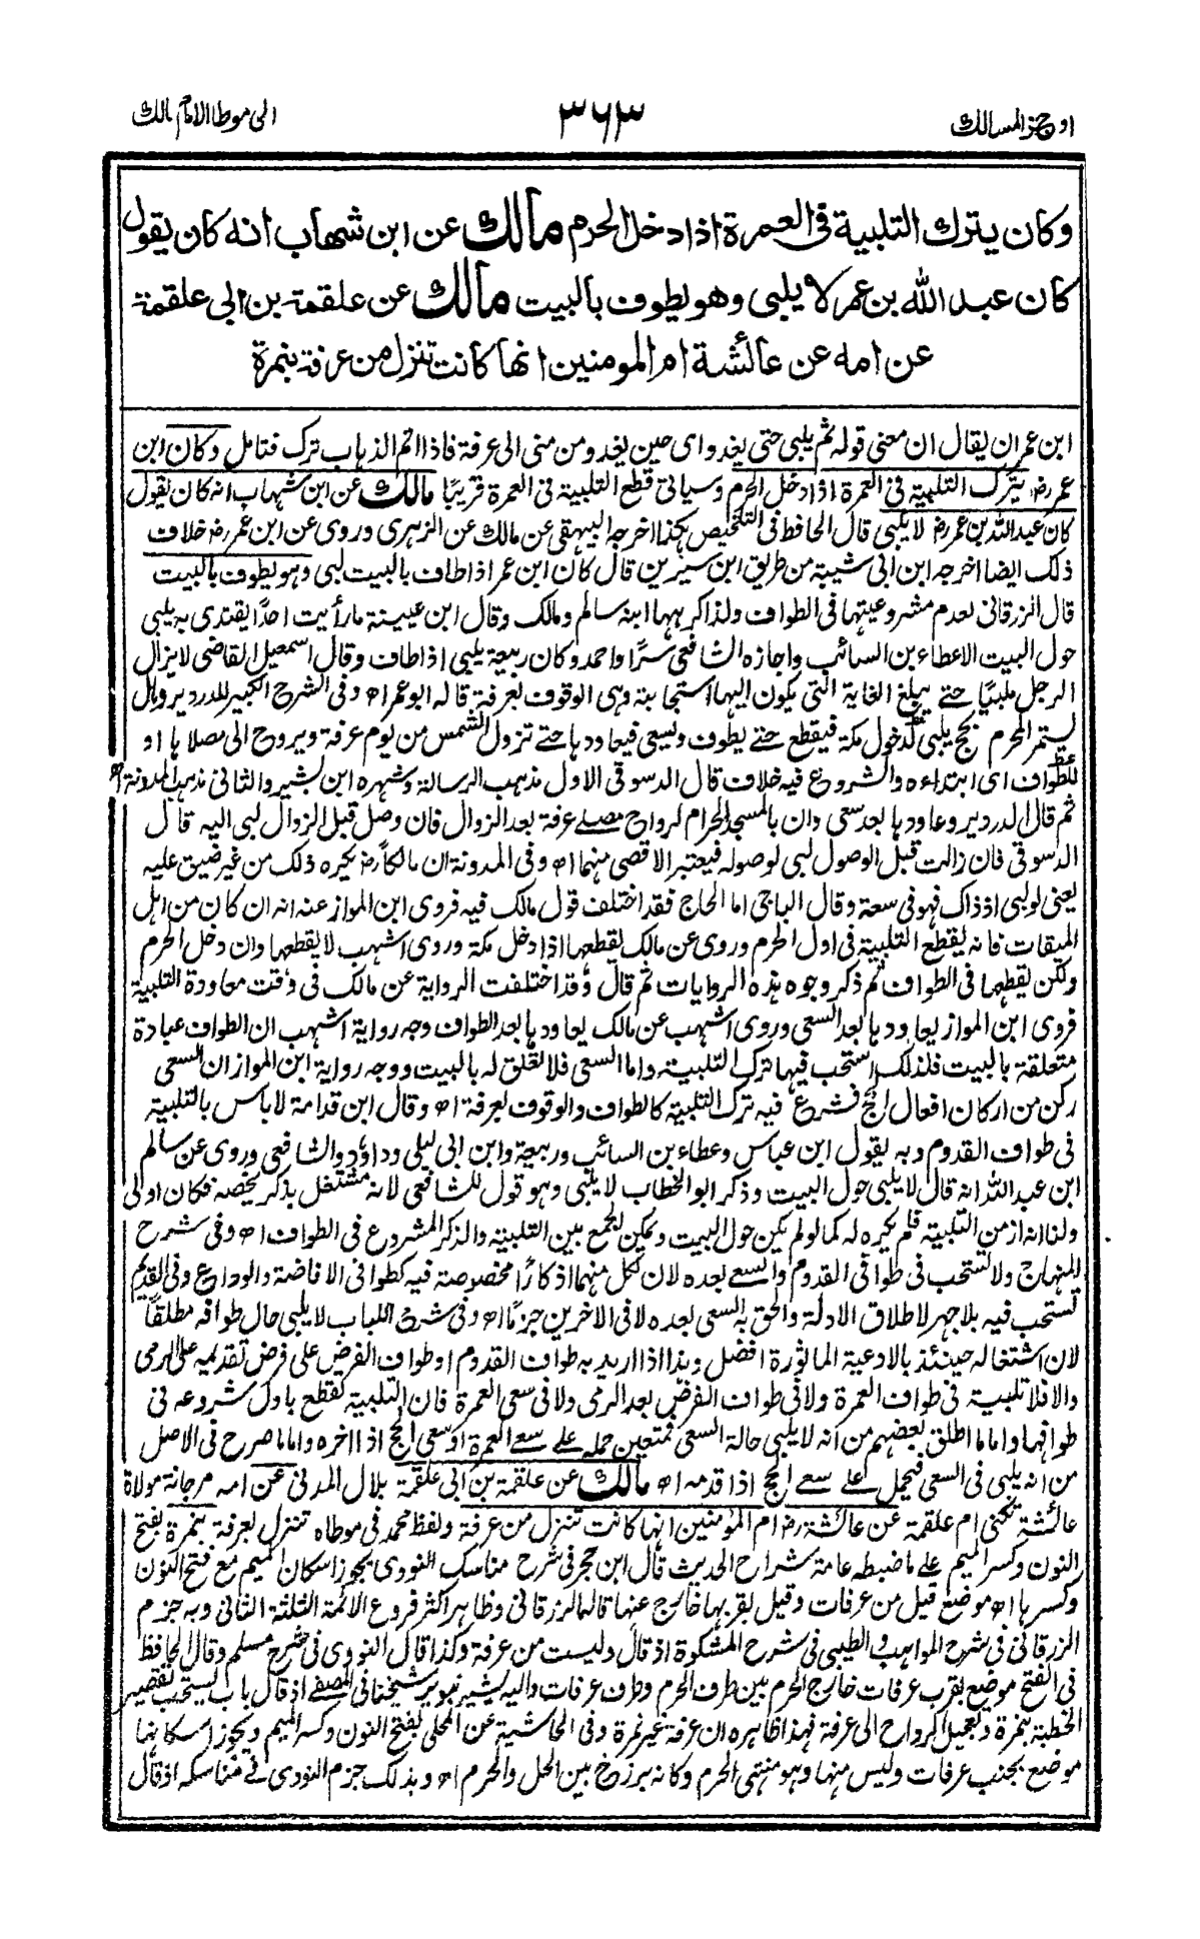 اوجز المسالك
٣٦٣
الى موطا الامام مالك
وكان يترك التلبية فى العمرة اذا دخل الحرم مالك عن ابن شهاب انه كان يقول
كان عبد الله بن عمر لا يلبى وهو يطوف بالبيت مالك عن علقمة بن ابى علقمة
عن امه عن عائشة ام المومنين انها كانت تنزل من عرفة بنمرة
ابن عمران يقال ان معنى قوله ثم يلبى حتى يغدو اى حين يغدو من منى الى عرفة فاذا اتم الذهاب ترك فتامل وكان ابن
عمر رض يترك التلبية فى العمرة اذا دخل الحرم وسياتى قطع التلبية فى العمرة قريبًا مالك عن ابن شهاب انه كان يقول
كان عبد الله بن عمر رض لا يلبى قال الحافظ فى التلخيص هكذا اخرجه البيهقى عن مالك عن الزهرى وروى عن ابن عمر رض خلاف
ذلك ايضا اخرجه ابن ابى شيبة من طريق ابن سيرين قال كان ابن عمر اذا طاف بالبيت لبى وهو يطوف بالبيت
قال الزرقانى لعدم مشروعيتها فى الطواف ولذا كرهها ابنه سالم ومالك وقال ابن عيينة ما رأيت احدًا يقتدى به يلبى
حول البيت الا عطاء بن السائب واجازه الشافعى سرًا واحمد وكان ربيعة يلبى اذا طاف وقال اسمعيل القاضى لا يزال
الرجل ملبيًا حتى يبلغ الغاية التى يكون اليها استجابته وهى الوقوف بعرفة قاله ابو عمر اھ وفى الشرح الكبير للدردير وهل
يستمر المحرم بحج يلبى لدخول مكة فيقطع حتى يطوف ويسعى فيعاودها حتى تزول الشمس من يوم عرفة ويروح الى مصلاها او
للطواف اى ابتداءه والشروع فيه خلاف قال الدسوقى الاول مذهب الرسالة وشهره ابن بشير والثانى مذهب المدونة اھ
ثم قال الدردير وعاودها بعد سعى وان بالمسجد الحرام لرواح مصلى عرفة بعد الزوال فان وصل قبل الزوال لبى اليه قال
الدسوقى فان زالت قبل الوصول لبى لوصوله فيعتبر الاقصى منهما اھ وفى المدونة ان مالكًا رض يكره ذلك من غير ضيق عليه
يعنى لو لبى اذ ذاك فهو فى سعة وقال الباجى اما الحاج فقد اختلف قول مالك فيه فروى ابن المواز عنه انه ان كان من اهل
الميقات فانه يقطع التلبية فى اول الحرم وروى عن مالك يقطعها اذا دخل مكة وروى اشهب لا يقطعها وان دخل الحرم
ولكن يقطعها فى الطواف ثم ذكر وجوه هذه الروايات ثم قال وقد اختلفت الرواية عن مالك فى وقت معاودة التلبية
فروى ابن المواز يعاودها بعد السعى وروى اشهب عن مالك يعاودها بعد الطواف وجه رواية اشهب ان الطواف عبادة
متعلقة بالبيت فلذلك استحب فيها ترك التلبية واما السعى فلا تعلق له بالبيت ووجه رواية ابن المواز ان السعى
ركن من اركان افعال الحج فشرع فيه ترك التلبية كالطواف والوقوف بعرفة اھ وقال ابن قدامة لا باس بالتلبية
فى طواف القدوم وبه يقول ابن عباس وعطاء بن السائب وربيعة وابن ابى ليلى وداؤد والشافعى وروى عن سالم
ابن عبد الله انه قال لا يلبى حول البيت وذكر ابو الخطاب لا يلبى وهو قول للشافعى لانه مشتغل بذكر يخصه فكان اولى
ولنا انه زمن التلبية فلم يكره له كما لو لم يكن حول البيت ويمكن الجمع بين التلبية والذكر المشروع فى الطواف اھ وفى شرح
المنهاج ولا تستحب فى طوافى القدوم والسعى بعده لان لكل منهما اذكارًا مخصوصة فيه كطوافى الافاضة والوداع وفى القديم
تستحب فيه بلا جهر لاطلاق الادلة والحق به السعى بعده لا فى الاخرين جزمًا اھ وفى شرح اللباب لا يلبى حال طوافه مطلقًا
لان اشتغاله حينئذ بالادعية الماثورة افضل وهذا اذا اريد به طواف القدوم او طواف الفرض على فرض تقديمه على الرمى
والا فلا تلبية فى طواف العمرة ولا فى طواف الفرض بعد الرمى ولا فى سعى العمرة فان التلبية تقطع باول شروعه فى
طوافها واما ما اطلق بعضهم من انه لا يلبى حالة السعى فمتعين حمله على سعى العمرة او سعى الحج اذا اخره واما ما صرح فى الاصل
من انه يلبى فى السعى فيحمل على سعى الحج اذا قدمه اھ مالك عن علقمة بن ابى علقمة بلال المدنى عن امه مرجانة مولاة
عائشة تكنى ام علقمة عن عائشة رض ام المؤمنين انها كانت تنزل من عرفة ولفظ محمد فى موطاه تنزل بعرفة بنمرة بفتح
النون وكسر الميم على ما ضبطه عامة شراح الحديث قال ابن حجر فى شرح مناسك النووى يجوز اسكان الميم مع فتح النون
وكسرها اھ موضع قيل من عرفات وقيل بقربها خارج عنها قاله الزرقانى وظاهر اكثر فروع الائمة الثلثة الثانى وبه جزم
الزرقانى فى شرح المواهب والطيبى فى شرح المشكوة اذ قال وليست من عرفة وكذا قال النووى فى شرح مسلم وقال الحافظ
فى الفتح موضع بقرب عرفات خارج الحرم بين طرف الحرم وطرف عرفات واليه يشير تبويب شيخنا فى المصفى اذ قال باب يستحب تقصير
الخطبة بنمرة وتعجيل الرواح الى عرفة فهذا ظاهره ان عرفة غير نمرة وفى الحاشية عن المحلى بفتح النون وكسر الميم ويجوز اسكانها
موضع بجنب عرفات وليس منها وهو منتهى الحرم وكانه برزخ بين الحل والحرم اھ وبذلك جزم النووى فى مناسكه اذ قال